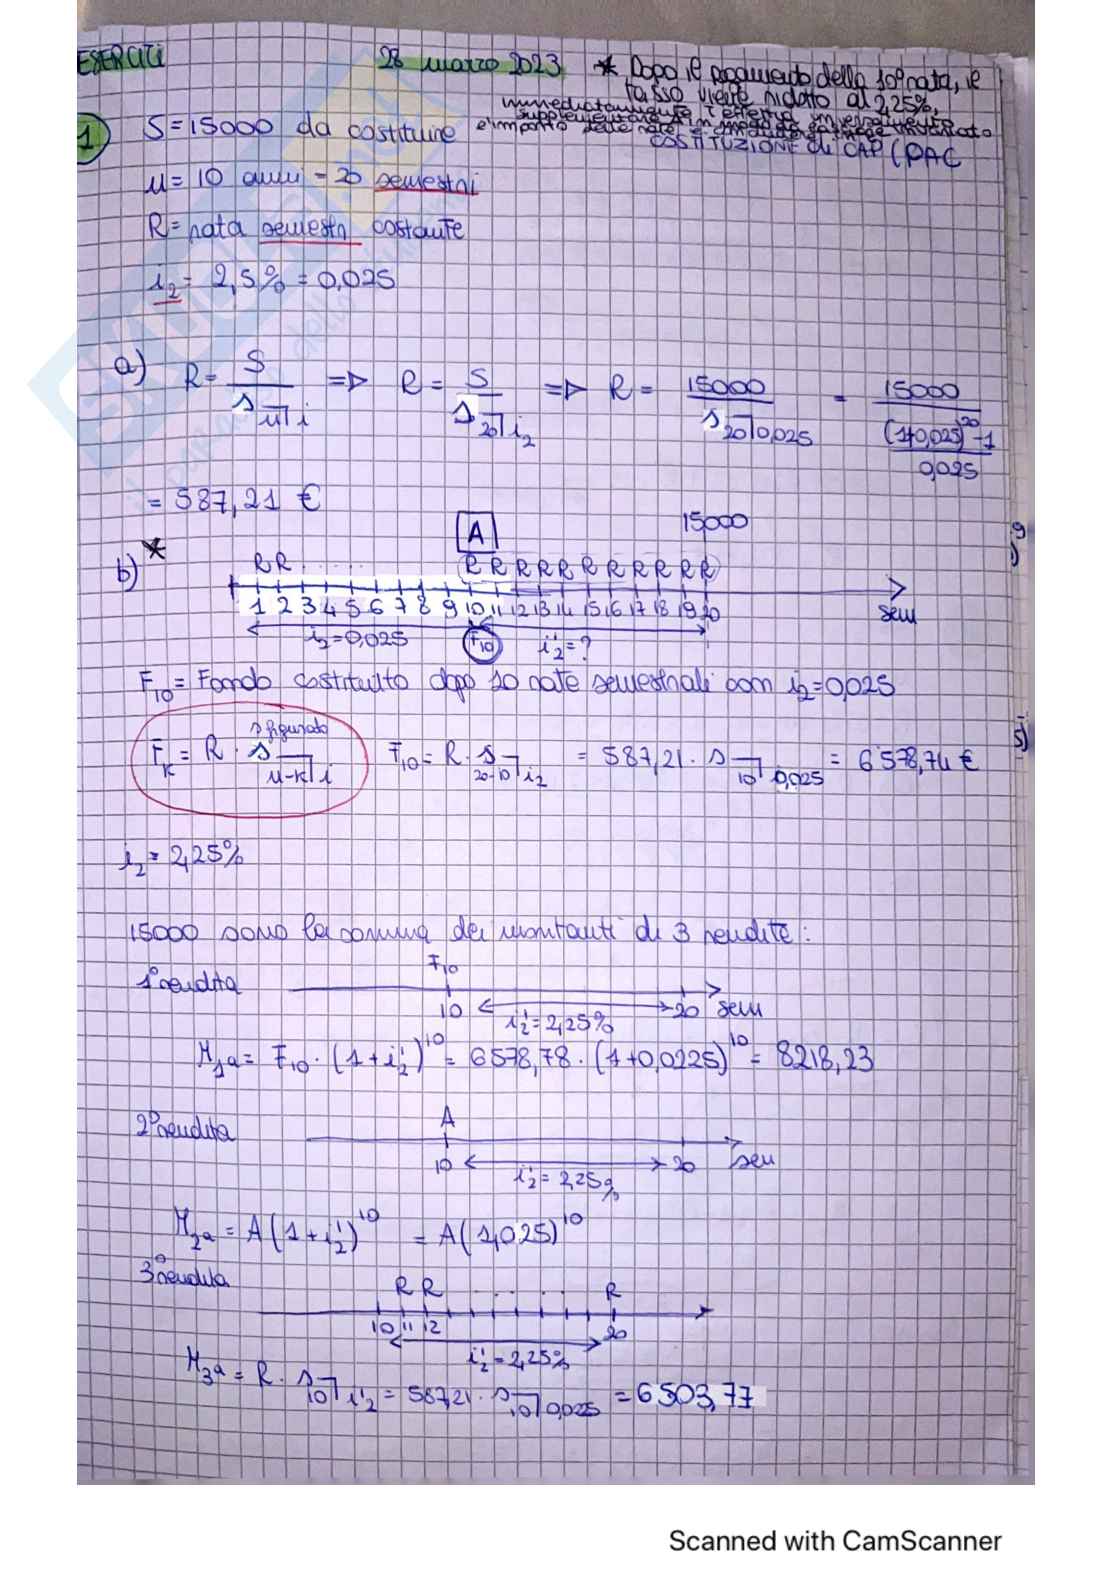 ESERCIZI 28 marzo 2023 * Dopo il pagamento della 10ª rata, il
tasso viene ridotto al 2,25%,
immediatamente si effettua un versamento
supplementare A in modo da
e importo delle rate
1 S = 15000 da costituire
COSTITUZIONE di CAP (PAC
u = 10 anni - 20 semestri
R = rata semestr costante
i2 = 2,5% = 0,025
a) R = S / s u⌉i => R = S / s 20⌉i2 => R = 15000 / s 20⌉0,025 = 15000 / ((1+0,025)^20 - 1 / 0,025)
= 587,21 €
A 15000
b) * R R ..... R R R R R R R R R R R
1 2 3 4 5 6 7 8 9 10 11 12 13 14 15 16 17 18 19 20 sem
i2 = 0,025 F10 i'2 = ?
F10 = Fondo costituito dopo 10 rate semestrali com i2 = 0,025
s figurato
FK = R · s u-K⌉i F10 = R · s 20-10⌉i2 = 587,21 · s 10⌉0,025 = 6578,74 €
i2 = 2,25%
15000 sono la somma dei montanti di 3 rendite:
F10
1° rendita
10 20 sem
i'2 = 2,25%
M1a = F10 · (1 + i'2)^10 = 6578,78 · (1+0,0225)^10 = 8218,23
A
2° rendita
10 20 sem
i'2 = 2,25%
M2a = A(1 + i'2)^10 = A(1,025)^10
3° rendita
R R .... R
10 11 12 20
i'2 = 2,25%
M3a = R · s 10⌉i'2 = 587,21 · s 10⌉0,025 = 6503,77
Scanned with CamScanner